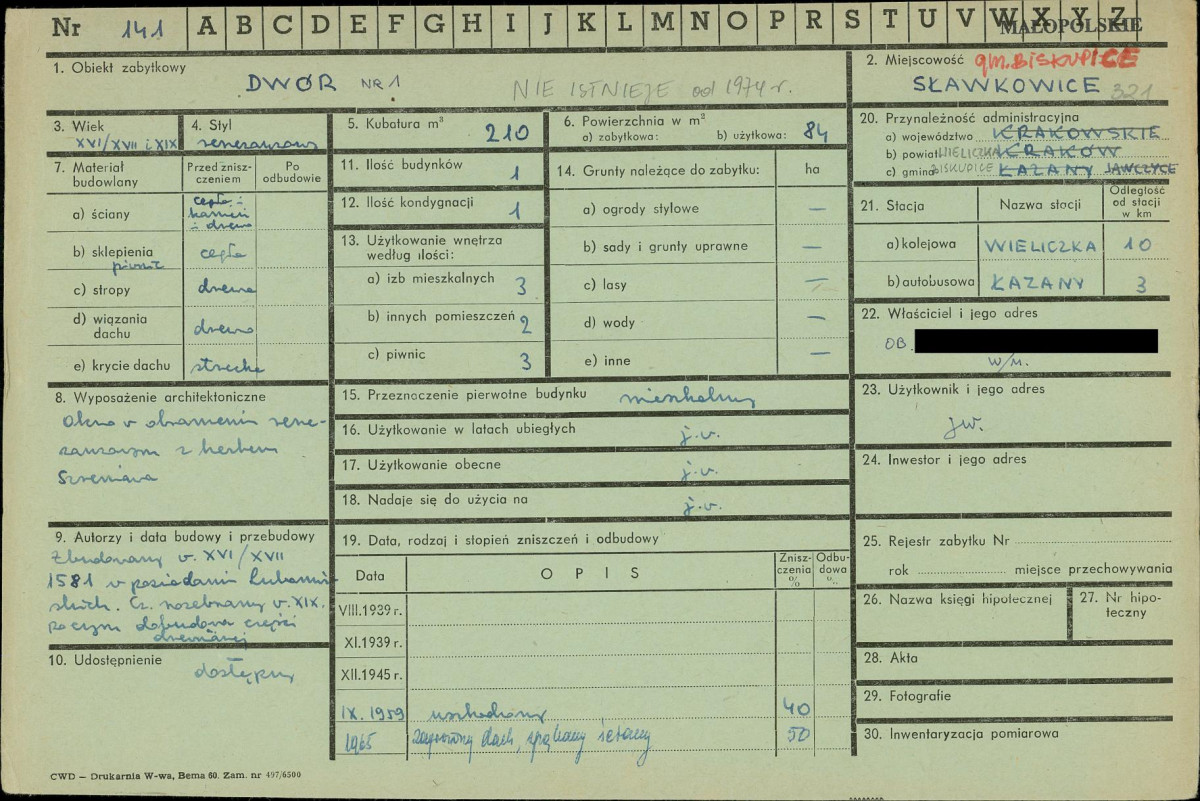 Nr 141 A B C D E F G H I J K L M N O P R S T U V W X Y Z
MAŁOPOLSKIE
1. Obiekt zabytkowy
DWÓR NR 1
NIE ISTNIEJE od 1974 r.
2. Miejscowość gm. BISKUPICE
SŁAWKOWICE 321
3. Wiek
XVI/XVII i XIX
4. Styl
renesansowy
5. Kubatura m³ 210
6. Powierzchnia w m²
a) zabytkowa: b) użytkowa: 84
7. Materiał budowlany
Przed zniszczeniem
Po odbudowie
a) ściany
cegła i
kamień
i drewno
b) sklepienia cegła
piwnic
c) stropy drewno
d) wiązania dachu drewno
e) krycie dachu strzecha
8. Wyposażenie architektoniczne
Okno v obramieniu rene-
sansowym z herbem
Szreniawa
9. Autorzy i data budowy i przebudowy
Zbudowany v. XVI/XVII
1581 v posiadaniu Lubomir-
skich. Cz. rozebrany v. XIX.
poczym dobudowa części
drewnianej
10. Udostępnienie
dostępny
11. Ilość budynków 1
12. Ilość kondygnacji 1
13. Użytkowanie wnętrza
według ilości:
a) izb mieszkalnych 3
b) innych pomieszczeń 2
c) piwnic 3
14. Grunty należące do zabytku: ha
a) ogrody stylowe —
b) sady i grunty uprawne —
c) lasy —
d) wody —
e) inne —
15. Przeznaczenie pierwotne budynku mieszkalny
16. Użytkowanie w latach ubiegłych j.v.
17. Użytkowanie obecne j.v.
18. Nadaje się do użycia na j.v.
19. Data, rodzaj i stopień zniszczeń i odbudowy
Data OPIS Zniszczenia % Odbudowa %
VIII.1939 r.
XI.1939 r.
XII.1945 r.
IX. 1959 uszkodzony 40
1965 dach, ściany 50
20. Przynależność administracyjna
a) województwo KRAKOWSKIE
b) powiat WIELICZKA KRAKÓW
c) gmina BISKUPICE ŁAZANY JAWCZYCE
21. Stacja Nazwa stacji Odległość od stacji w km
a) kolejowa WIELICZKA 10
b) autobusowa ŁAZANY 3
22. Właściciel i jego adres
OB.
w/m.
23. Użytkownik i jego adres
jw.
24. Inwestor i jego adres
25. Rejestr zabytku Nr
rok miejsce przechowywania
26. Nazwa księgi hipotecznej
27. Nr hipoteczny
28. Akta
29. Fotografie
30. Inwentaryzacja pomiarowa
CWD — Drukarnia W-wa, Bema 60. Zam. nr 497/6500